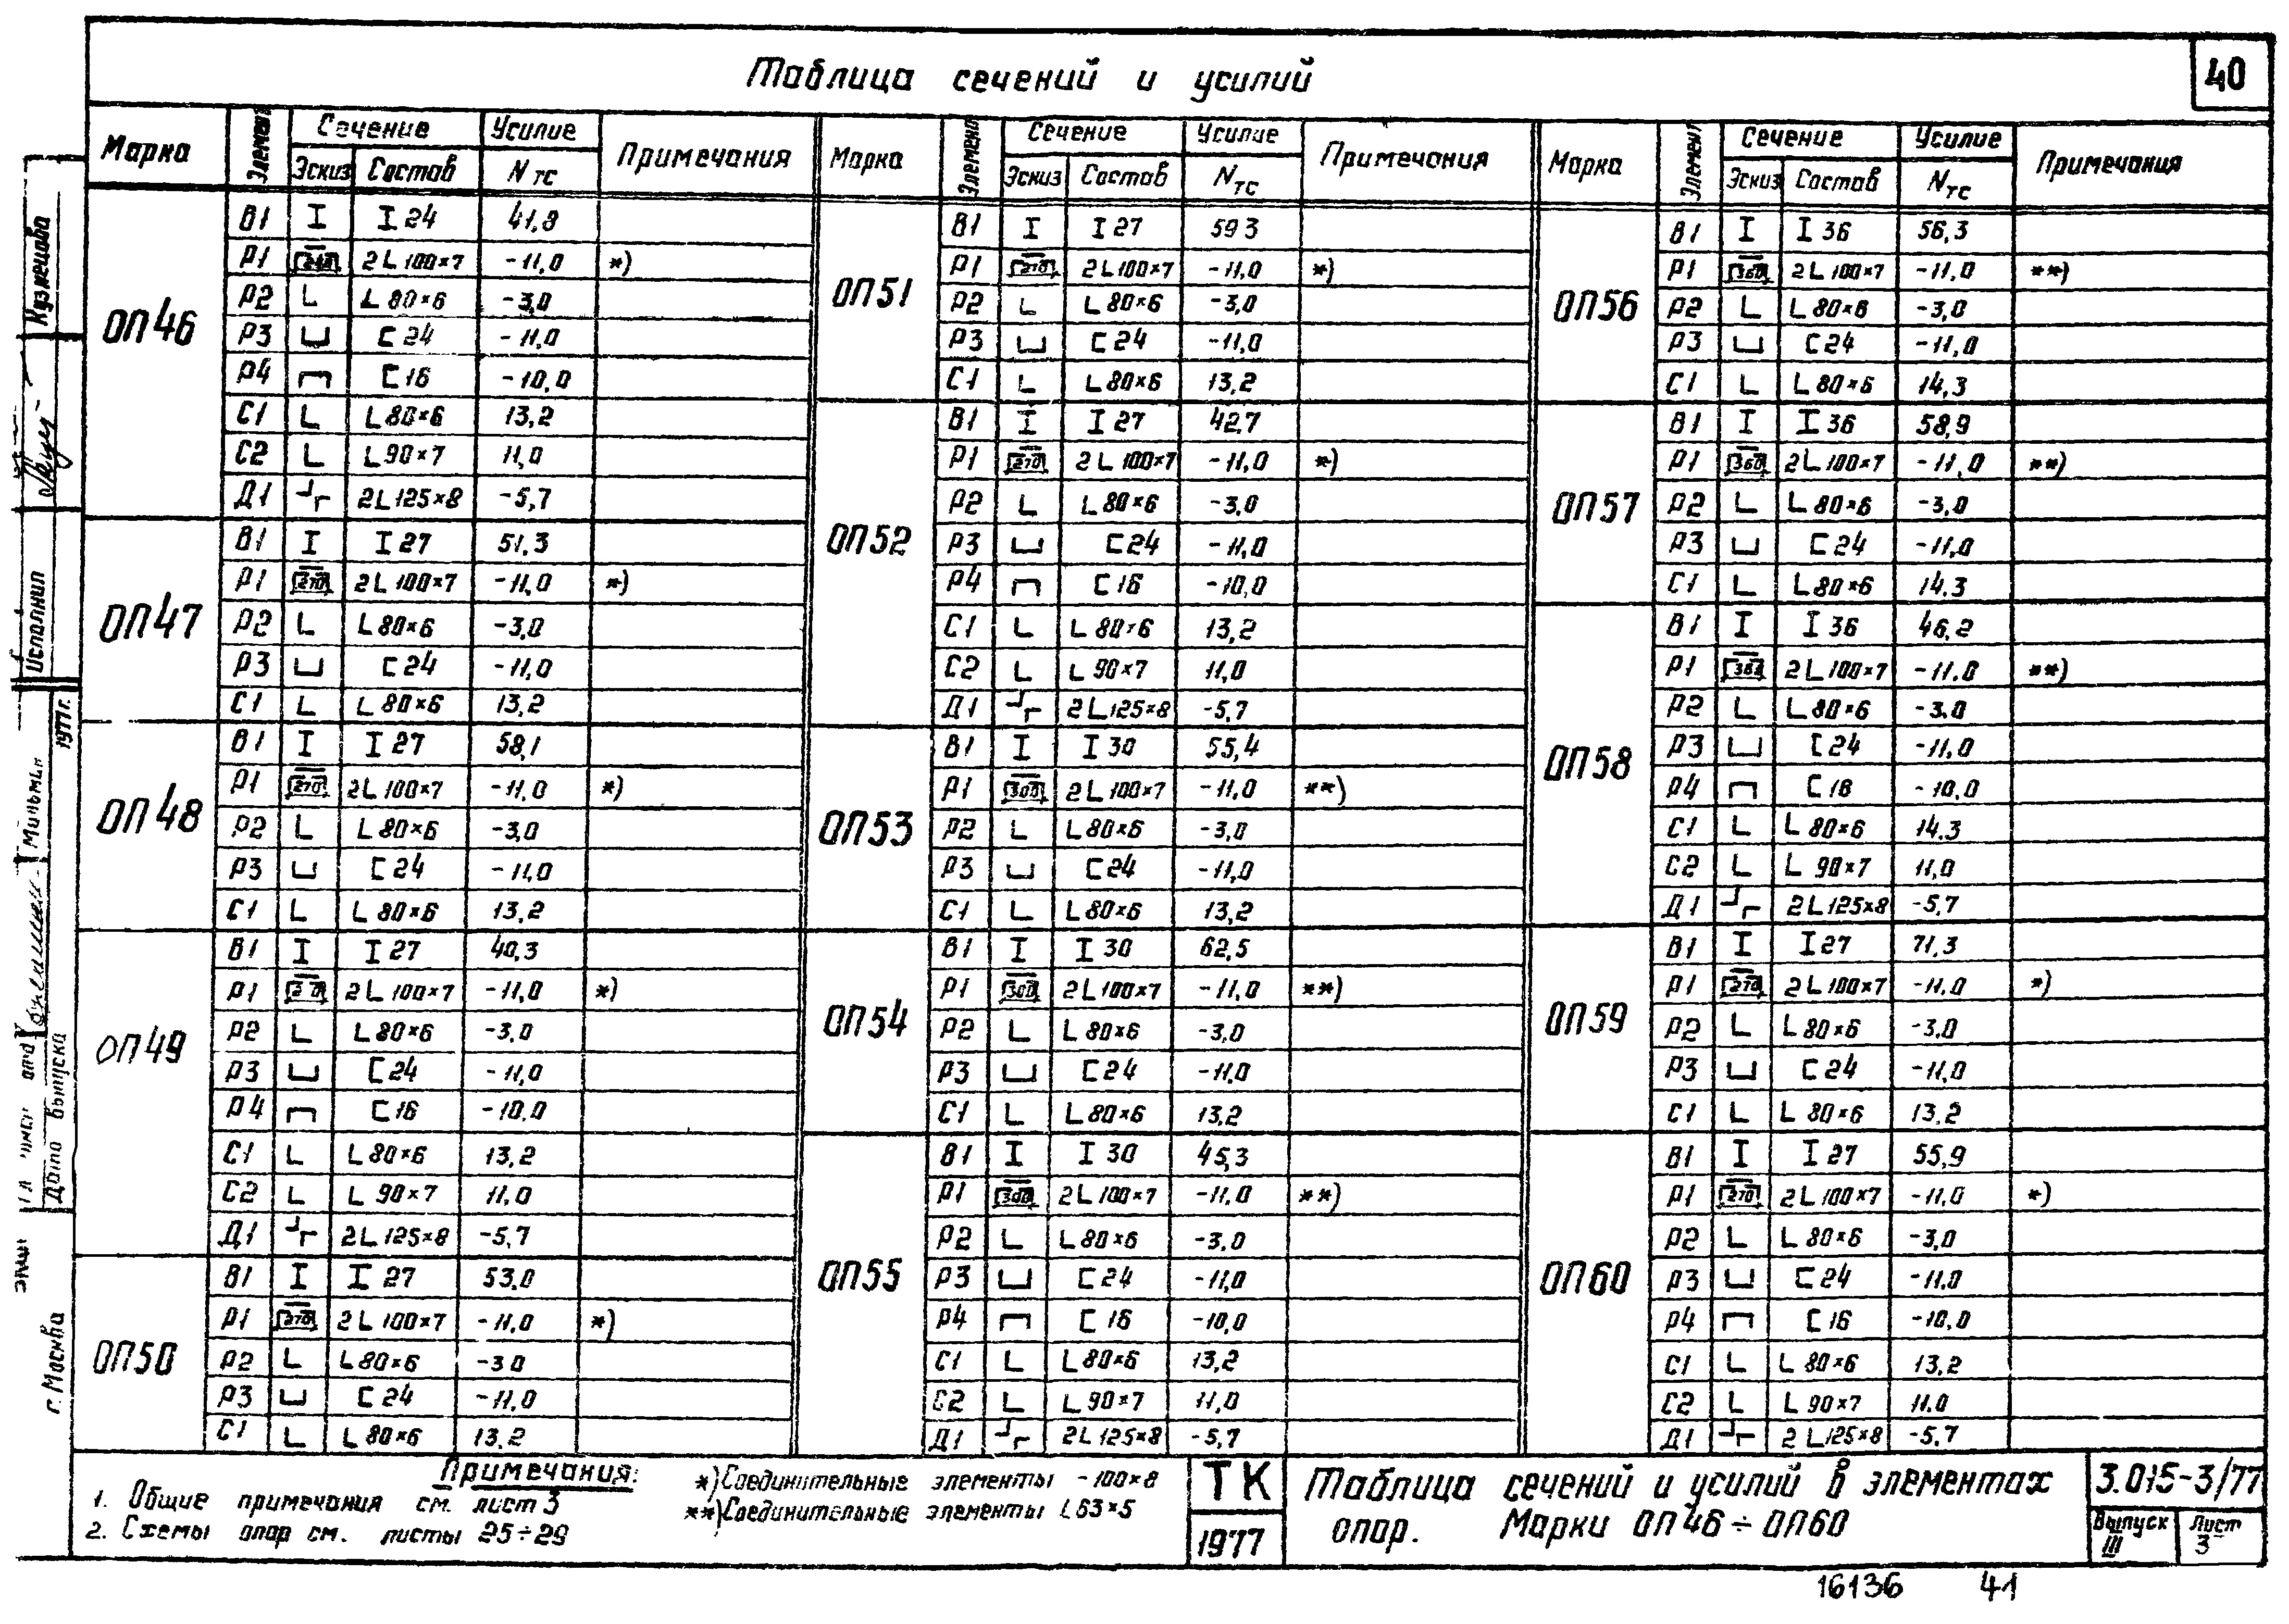 40
Таблица сечений и усилий
Марка Элемент Сечение Усилие Примечания
Эскиз Состав N тс
ОП46
В1 I 24 41,8
Р1 240 2L100×7 -11,0 *)
Р2 L80×6 -3,0
Р3 [24 -11,0
Р4 [16 -10,0
С1 L80×6 13,2
С2 L90×7 11,0
Д1 2L125×8 -5,7
ОП47
В1 I 27 51,3
Р1 270 2L100×7 -11,0 *)
Р2 L80×6 -3,0
Р3 [24 -11,0
С1 L80×6 13,2
ОП48
В1 I 27 58,1
Р1 270 2L100×7 -11,0 *)
Р2 L80×6 -3,0
Р3 [24 -11,0
С1 L80×6 13,2
ОП49
В1 I 27 40,3
Р1 2L100×7 -11,0 *)
Р2 L80×6 -3,0
Р3 [24 -11,0
Р4 [16 -10,0
С1 L80×6 13,2
С2 L90×7 11,0
Д1 2L125×8 -5,7
ОП50
В1 I 27 53,0
Р1 270 2L100×7 -11,0 *)
Р2 L80×6 -3 0
Р3 [24 -11,0
С1 L80×6 13,2
Марка Элемент Сечение Усилие Примечания
Эскиз Состав Nтс
ОП51
В1 I 27 59 3
Р1 270 2L100×7 -11,0 *)
Р2 L80×6 -3,0
Р3 [24 -11,0
С1 L80×6 13,2
ОП52
В1 I 27 42,7
Р1 270 2L100×7 -11,0 *)
Р2 L80×6 -3,0
Р3 [24 -11,0
Р4 [16 -10,0
С1 L80×6 13,2
С2 L90×7 11,0
Д1 2L125×8 -5,7
ОП53
В1 I 30 55,4
Р1 300 2L100×7 -11,0 **)
Р2 L80×6 -3,0
Р3 [24 -11,0
С1 L80×6 13,2
ОП54
В1 I 30 62,5
Р1 300 2L100×7 -11,0 **)
Р2 L80×6 -3,0
Р3 [24 -11,0
С1 L80×6 13,2
ОП55
В1 I 30 45,3
Р1 300 2L100×7 -11,0 **)
Р2 L80×6 -3,0
Р3 [24 -11,0
Р4 [16 -10,0
С1 L80×6 13,2
С2 L90×7 11,0
Д1 2L125×8 -5,7
Марка Элемент Сечение Усилие Примечания
Эскиз Состав Nтс
ОП56
В1 I 36 56,3
Р1 360 2L100×7 -11,0 **)
Р2 L80×6 -3,0
Р3 [24 -11,0
С1 L80×6 14,3
ОП57
В1 I 36 58,9
Р1 360 2L100×7 -11,0 **)
Р2 L80×6 -3,0
Р3 [24 -11,0
С1 L80×6 14,3
ОП58
В1 I 36 46,2
Р1 360 2L100×7 -11,0 **)
Р2 L80×6 -3,0
Р3 [24 -11,0
Р4 [16 -10,0
С1 L80×6 14,3
С2 L90×7 11,0
Д1 2L125×8 -5,7
ОП59
В1 I 27 71,3
Р1 270 2L100×7 -11,0 *)
Р2 L80×6 -3,0
Р3 [24 -11,0
С1 L80×6 13,2
ОП60
В1 I 27 55,9
Р1 270 2L100×7 -11,0 *)
Р2 L80×6 -3,0
Р3 [24 -11,0
Р4 [16 -10,0
С1 L80×6 13,2
С2 L90×7 11,0
Д1 2L125×8 -5,7
Примечания:
1. Общие примечания см. лист 3
2. Схемы опор см. листы 25÷29
*) Соединительные элементы -100×8
**) Соединительные элементы L63×5
ТК
1977
Таблица сечений и усилий в элементах
опор. Марки ОП46÷ОП60
3.015-3/77
Выпуск III
Лист 3
16136 41
Кузнецова
Исполнил
1977г.
Дата выпуска
г. Москва